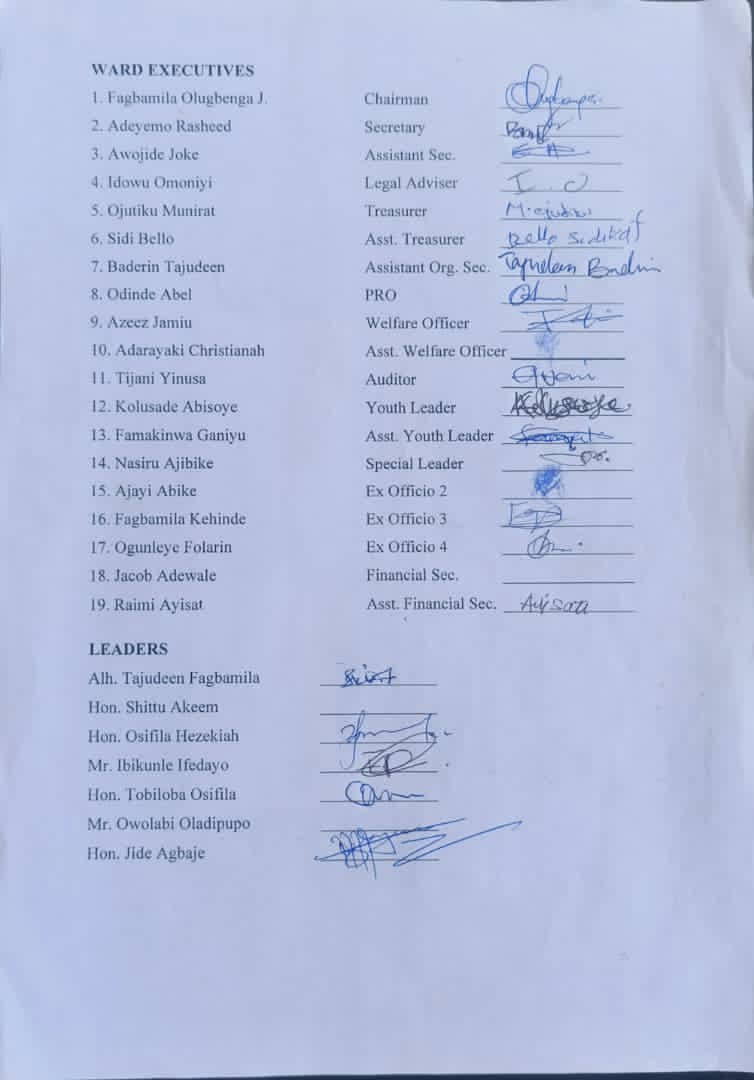 WARD EXECUTIVES
1. Fagbamila Olugbenga J. Chairman
2. Adeyemo Rasheed Secretary
3. Awojide Joke Assistant Sec.
4. Idowu Omoniyi Legal Adviser I. O
5. Ojutiku Munirat Treasurer
6. Sidi Bello Asst. Treasurer Bello
7. Baderin Tajudeen Assistant Org. Sec. Tajudeen
8. Odinde Abel PRO
9. Azeez Jamiu Welfare Officer
10. Adarayaki Christianah Asst. Welfare Officer
11. Tijani Yinusa Auditor
12. Kolusade Abisoye Youth Leader
13. Famakinwa Ganiyu Asst. Youth Leader
14. Nasiru Ajibike Special Leader
15. Ajayi Abike Ex Officio 2
16. Fagbamila Kehinde Ex Officio 3
17. Ogunleye Folarin Ex Officio 4
18. Jacob Adewale Financial Sec.
19. Raimi Ayisat Asst. Financial Sec.
LEADERS
Alh. Tajudeen Fagbamila
Hon. Shittu Akeem
Hon. Osifila Hezekiah
Mr. Ibikunle Ifedayo
Hon. Tobiloba Osifila
Mr. Owolabi Oladipupo
Hon. Jide Agbaje